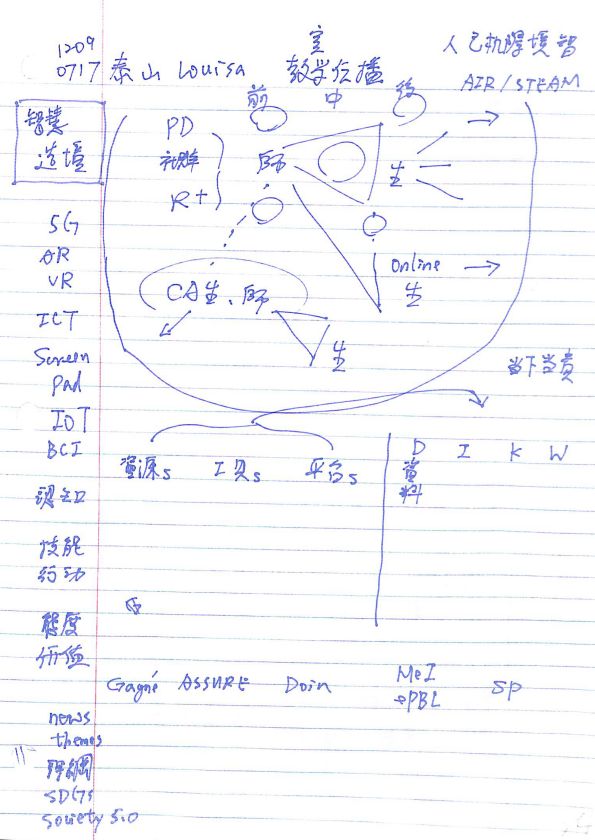 1209
0717 泰山 Louisa
室
教学传播
前 中 後
人己机際境智
AIR/STEAM
智慧
造境
PD
社群
R+
師
生
Online
生
CA生、師
生
5G
AR
VR
ICT
Screen
Pad
IOT
BCI
認知
技能
行动
態度
价值
当下当责
資源s 工具s 平台s
D I K W
資料
Gagné ASSURE Doin MeI SP
→PBL
news
themes
11-
SDGs
Society 5.0